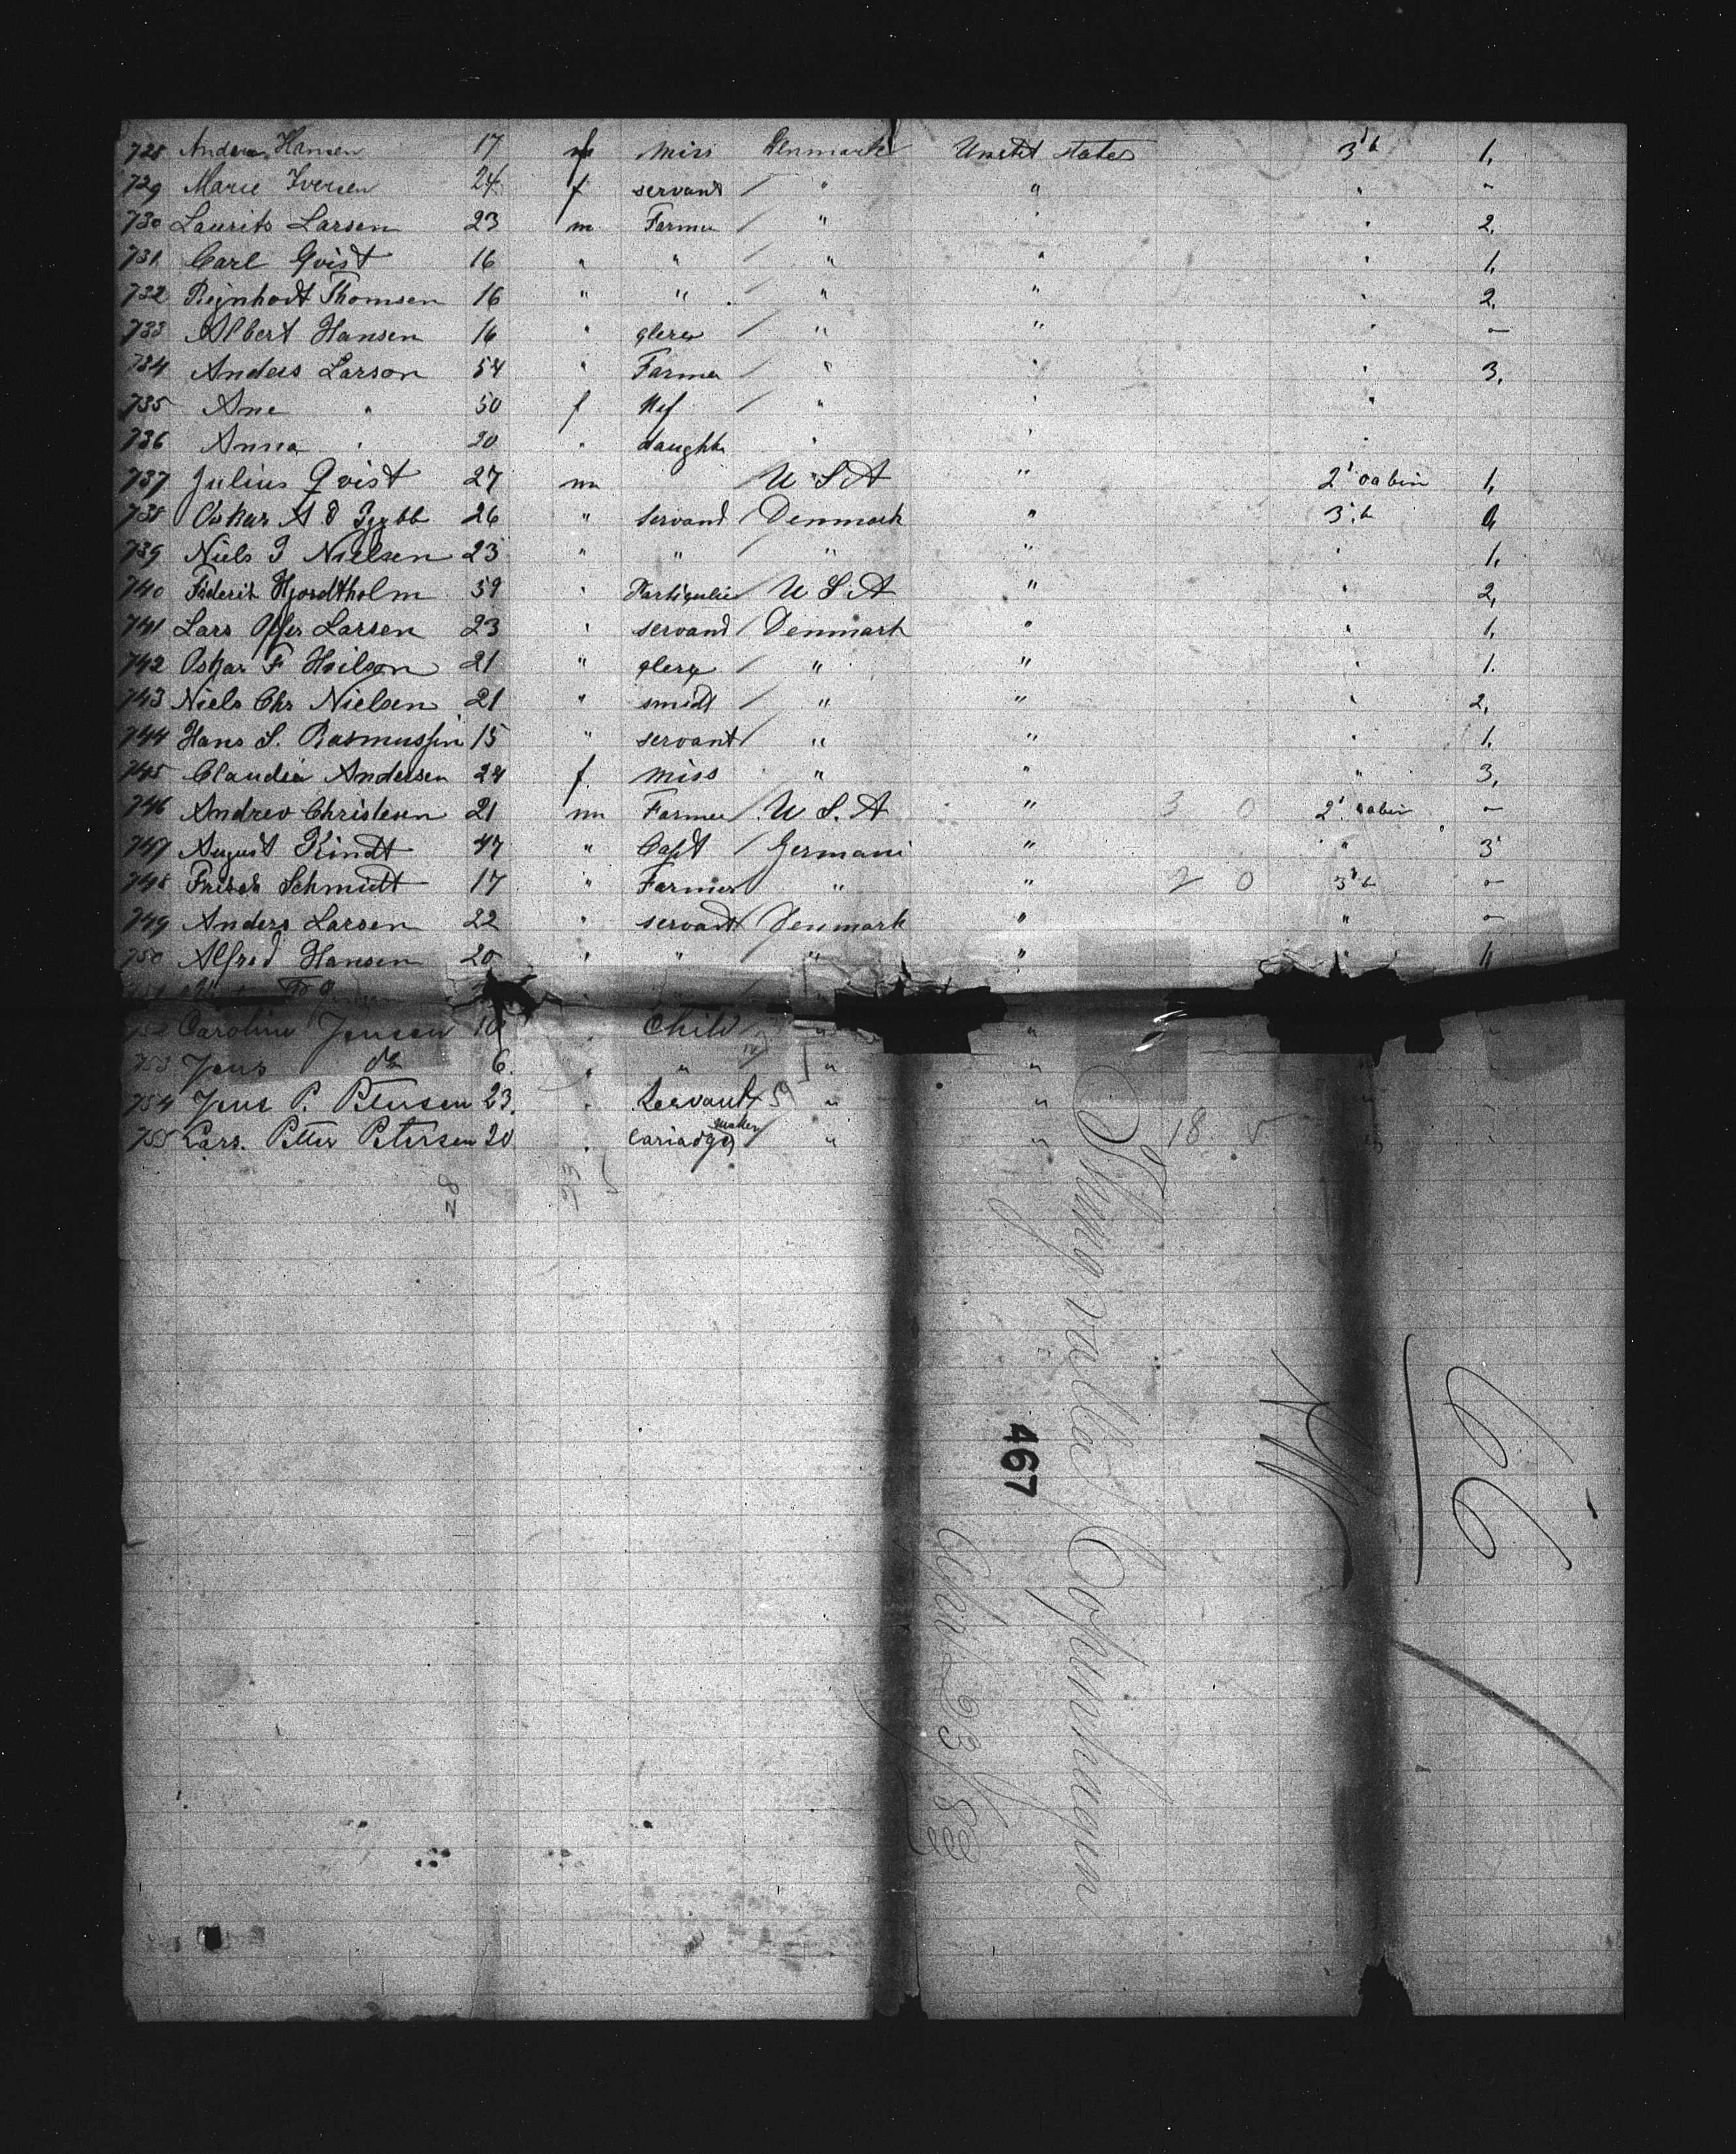 728 Andrea Hansen 17 f Miss Denmark Unetet states 3d 1.
729 Marie Iversen 24 f servand / " " " -
730 Laurits Larsen 23 m Farmer / " " " 2.
731 Carl Qvist 16 " " / " " " 1.
732 Rejnhodt Thomsen 16 " " / " " " 2.
733 Albert Hansen 16 " / " " " -
734 Anders Larson 54 " Farmer / " " " 3.
735 Ane " 50 f / " " "
736 Anna " 20 " daughter " " "
737 Julius Qvist 27 m U S A " 2d cabin 1,
738 Oskar A 26 " servand / Denmark " 3d
739 Niels J Nielsen 23 " " / " " " 1.
740 Hjordtholm 59 " / U S A " " 2,
741 Lars Larsen 23 " servand / Denmark " " 1.
742 Oskar F 21 " / " " " 1.
743 Niels Chr Nielsen 21 " smidt / " " " 2,
744 Hans S. Rasmussen 15 " servant / " " " 1.
745 Claudia Andersen 24 f miss " " " 3,
746 Andrev Christesen 21 m Farmer / U S. A " 3 0 2d cabin -
747 August Kindt 47 " Capt / Germani " " 3
748 Schmidt 17 " Farmer " " 2 0 3d -
749 Anders Larsen 22 " servant / Denmark " " -
750 Alfred Hansen 20 " " " " " 1,
751
752 Caroline Jensen 10 " Child " "
753 Jens do 6. " " " " "
754 Jens P. Petersen 23. " Servant " " "
755 Lars. Petter Petersen 20 " Cariadge maker / " " 18
28
Thingvalla / Copenhagen
467
April 23/88
66